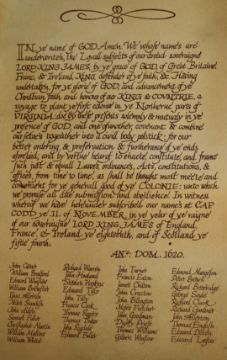 IN ye name of GOD, Amen. We whose names are
underwriten, the loyall subjects of our dread soveraigne
LORD KING JAMES by ye grace of GOD, of Great Britaine,
Franc, & Ireland, KING, defender of ye faith, &c. Having
undertaken, for ye glorie of GOD, and advancemente of ye
Christian faith, and honour of our KING & COUNTRIE, a
voyage to plant ye first colonie in ye Northerne parts of
VIRGINIA, doe by these presents solemnly & mutualy in ye
presence of GOD, and one of another, covenant & combine
our selves togeather into a civill body politick, for our
better ordering, & preservation & furtherance of ye ends
aforesaid, and by vertue hearof to enacte, constitute, and frame
such just & equall Lawes, ordinances, Acts, constitutions, &
offices, from time to time, as shall be thought most meete and
convenient for ye generall good of ye COLONIE: unto which
we promise all due submission and obedience. In witness
wherof we have hereunder subscribed our names at CAP
CODD ye 11. of NOVEMBER, in ye year of ye raigne
of our soveraigne LORD KING JAMES of England,
France, & Ireland ye eighteenth, and of Scotland ye
fiftie fourth.
ANo. DOM. 1620.
John Carver
William Bradford
Edward Winslow
William Brewster
Isaac Allerton
Myles Standish
John Alden
Samuel Fuller
Christopher Martin
William Mullins
William White
Richard Warren
John Howland
Stephen Hopkins
Edward Tilley
John Tilley
Francis Cooke
Thomas Rogers
Thomas Tinker
John Rigdale
Edward Fuller
John Turner
Francis Eaton
James Chilton
John Crackston
John Billington
Moses Fletcher
John Goodman
Degory Priest
Thomas Williams
Gilbert Winslow
Edmund Margeson
Peter Brown
Richard Britteridge
George Soule
Richard Clark
Richard Gardiner
John Allerton
Thomas English
Edward Doty
Edward Leister